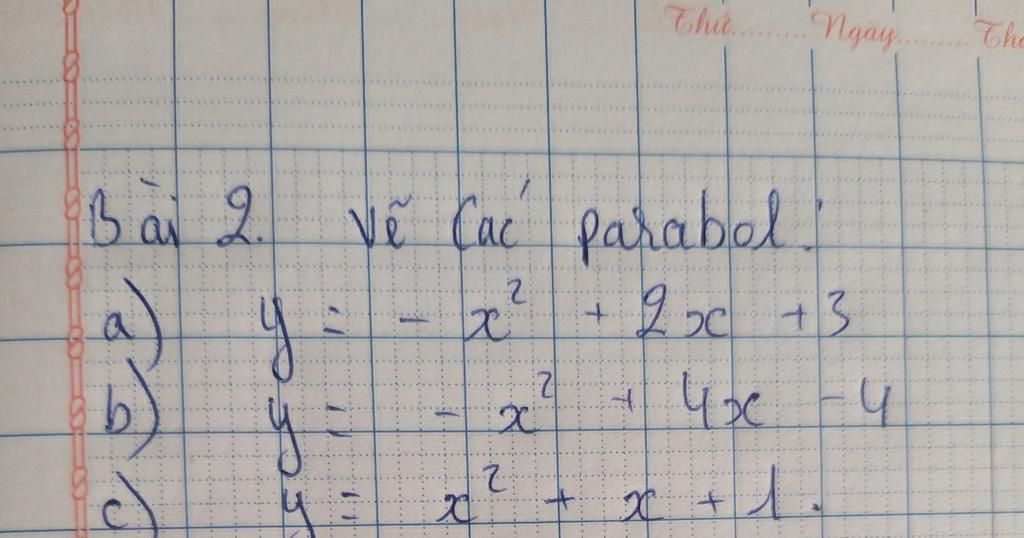 Thứ......... Ngày.........
Bài 2. Vẽ các parabol:
a) y = - x² + 2x + 3
b) y = - x² + 4x - 4
c) y = x² + x + 1.